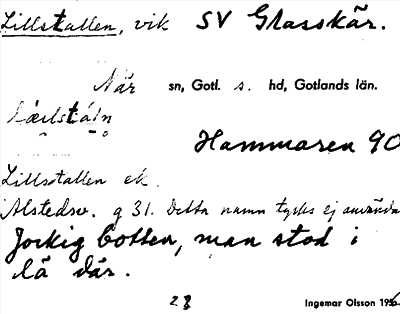 Lillstallen, vik SV Glasskär.
När sn, Gotl. s. hd, Gotlands län.
Hammaren 90
Lillstallen ek.
Alstedsv. g 31. Detta namn tycks ej använda
Jorkig botten, man stod i
lä där.
28 Ingemar Olsson 195